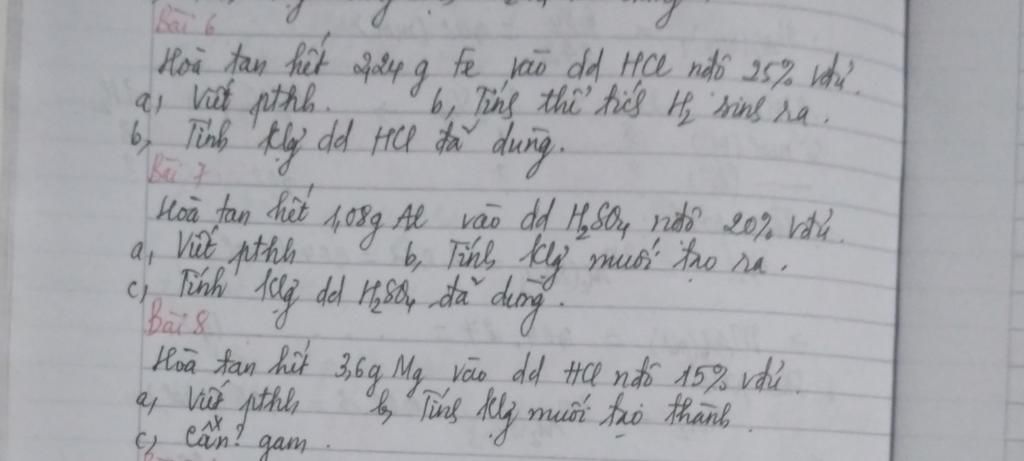 Bài 6
Hoà tan hết 2,24 g Fe vào dd HCl nđộ 25% vđủ.
a, Viết pthh. b, Tính thể tích H2 sinh ra.
b, Tính klg dd HCl đã dùng.
Bài 7
Hoà tan hết 1,08g Al vào dd H2SO4 nđộ 20% vđủ.
a, Viết pthh b, Tính klg muối tạo ra.
c, Tính klg dd H2SO4 đã dùng.
Bài 8
Hoà tan hết 3,6g Mg vào dd HCl nđộ 15% vđủ
a, Viết pthh b, Tính klg muối tạo thành
c, Cần? gam.